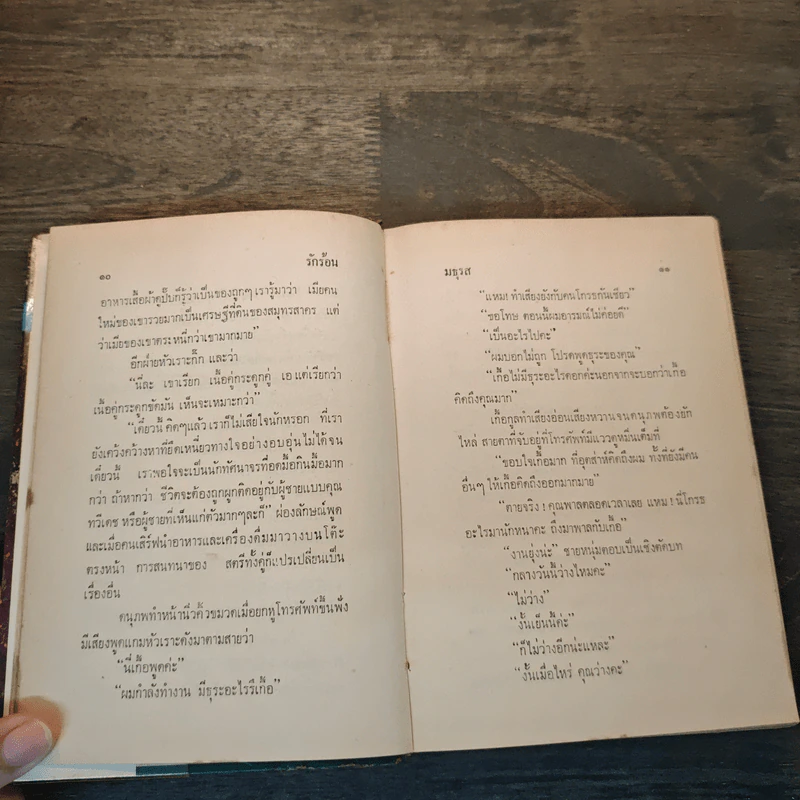 ๑๐
รักร้อน
อาหารเสื้อผ้าดูปั๊บก็รู้ว่าเป็นของถูกๆ เรารู้มาว่า เมียคน
ใหม่ของเขารวยมากเป็นเศรษฐีที่ดินของสมุทรสาคร แต่
ว่าเมียของเขาตระหนี่กว่าเขามากมาย”
อีกฝ่ายหัวเราะกิ๊ก และว่า
“นี่ละ เขาเรียก เนื้อคู่กระดูกคู่ เอ แต่เรียกว่า
เนื้อคู่กระดูกขัดมัน เห็นจะเหมาะกว่า”
“เดี๋ยวนี้ คิดๆแล้ว เราก็ไม่เสียใจนักหรอก ที่เรา
ยังเคว้งคว้างหาที่ยึดเหนี่ยวทางใจอย่างอบอุ่นไม่ได้จน
เดี๋ยวนี้ เราพอใจจะเป็นนกทัศนาจรที่อดมื้อกินมื้อมาก
กว่า ถ้าหากว่า ชีวิตจะต้องถูกผูกติดอยู่กับผู้ชายแบบคุณ
ทวีเดช หรือผู้ชายที่เห็นแก่ตัวมากๆละก็” ผ่องลักษณ์พูด
และเมื่อคนเสิร์ฟนำอาหารและเครื่องดื่มมาวางบนโต๊ะ
ตรงหน้า การสนทนาของ สตรีทั้งคู่ก็แปรเปลี่ยนเป็น
เรื่องอื่น
ดนุภพทำหน้านิ่วคิ้วขมวดเมื่อยกหูโทรศัพท์ขึ้นฟัง
มีเสียงพูดแกมหัวเราะดังมาตามสายว่า
“นี่เกื้อพูดค่ะ”
“ผมกำลังทำงาน มีธุระอะไรรึเกื้อ”
มธุรส
๑๑
“แหม! ทำเสียงยังกับคนโกรธกันเชียว”
“ขอโทษ ตอนนี้ผมอารมณ์ไม่ค่อยดี”
“เป็นอะไรไปคะ”
“ผมบอกไม่ถูก โปรดพูดธุระของคุณ”
“เกื้อไม่มีธุระอะไรดอกค่ะนอกจากจะบอกว่าเกื้อ
คิดถึงคุณมาก”
เกื้อกูลทำเสียงอ่อนเสียงหวานจนดนุภพต้องยัก
ไหล่ สายตาที่จับอยู่ที่โทรศัพท์มีแววดูหมิ่นเต็มที่
“ขอบใจเกื้อมาก ที่อุตส่าห์คิดถึงผม ทั้งที่ยังมีคน
อื่นๆ ให้เกื้อคิดถึงออกมากมาย”
“ตายจริง! คุณพาสตลอดเวลาเลย แหม! นี่โกรธ
อะไรมานักหนาคะ ถึงมาพาลกับเกื้อ”
“งานยุ่งน่ะ” ชายหนุ่มตอบเป็นเชิงตัดบท
“กลางวันนี้ว่างไหมคะ”
“ไม่ว่าง”
“งั้นเย็นนี้ค่ะ”
“ก็ไม่ว่างอีกน่ะแหละ”
“งั้นเมื่อไหร่ คุณว่างคะ”